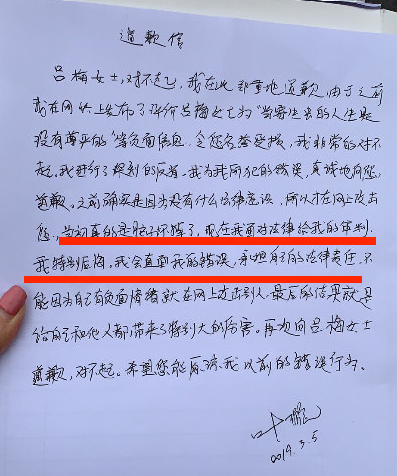 道歉信
吕梅女士,对不起,我在此郑重地道歉,由于之前
我在网络上发布了评价吕梅女士为“当寄生虫的人生是
没有尊严的”等负面信息,令您名誉受损,我非常的对不
起,我进行了深刻的反省,我为我所犯的错误,真诚地向您
道歉。之前确实是因为没有什么法律意识,所以才在网上攻击
您,当初真的是脑子坏掉了,现在我面对法律给我的审判,
我特别后悔。我会直面我的错误,承担自己的法律责任。不
能因为自己有负面情绪就在网上攻击别人,最后的结果就是
给自己和他人都带来了特别大的伤害。再次向吕梅女士
道歉,对不起。希望您能原谅我以前的错误行为。
2019.3.5